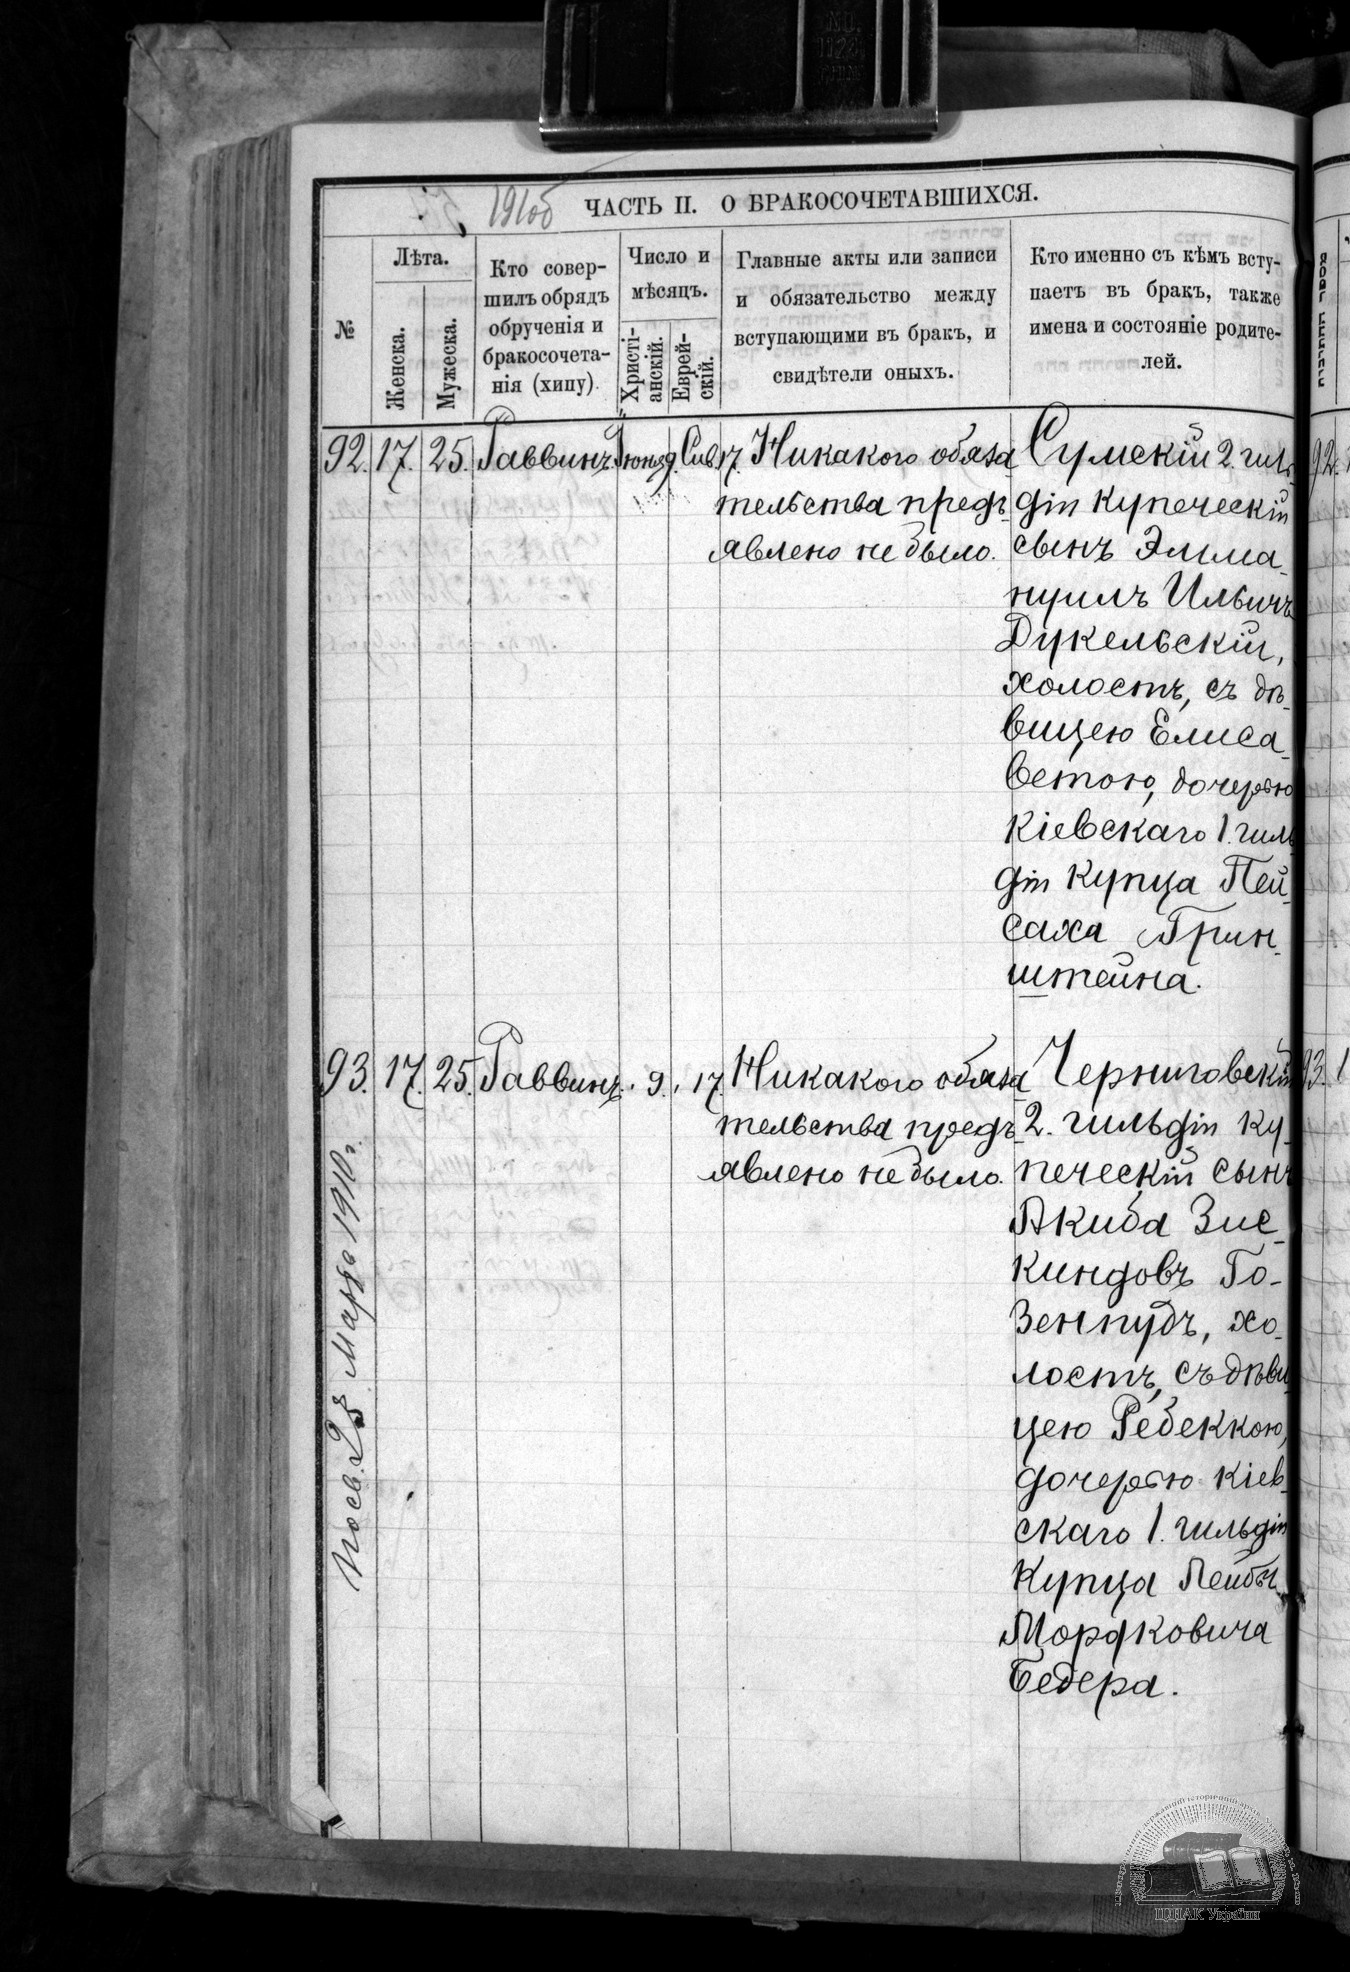 191об
ЧАСТЬ II. О БРАКОСОЧЕТАВШИХСЯ.
№
Лѣта.
Женска.
Мужеска.
Кто совер-
шилъ обрядъ
обрученія и
бракосочета-
нія (хипу).
Число и
мѣсяцъ.
Христі-
анскій.
Еврей-
скій.
Главные акты или записи
и обязательство между
вступающими въ бракъ, и
свидѣтели оныхъ.
Кто именно съ кѣмъ всту-
паетъ въ бракъ, также
имена и состояніе родите-
лей.
92. 17. 25. Раввинъ. Іюня 9. Сив. 17. Никакого обяза
тельства предъ-
явлено не было.
Сумскій 2. гиль-
діи купеческій
сынъ Эмма-
нуилъ Ильичъ
Дукельскій,
холостъ, съ дѣ-
вицею Елиса-
ветою, дочерью
Кіевскаго 1. гиль-
діи купца Пей-
саха Грин-
штейна.
93. 17. 25. Раввинъ. „ 9. „ 17. Никакого обяза
тельства предъ-
явлено не было.
Черниговскій
2. гильдіи ку-
печескій сынъ
Акиба Зис-
киндовъ Го-
зенпудъ, хо-
лостъ, съ дѣви-
цею Ребеккою,
дочерью Кіев-
скаго 1. гильдіи
купца Лейбы
Мордковича
Бедера.
23 Марта 1910 г.
92.
93.
ЦДІАК України